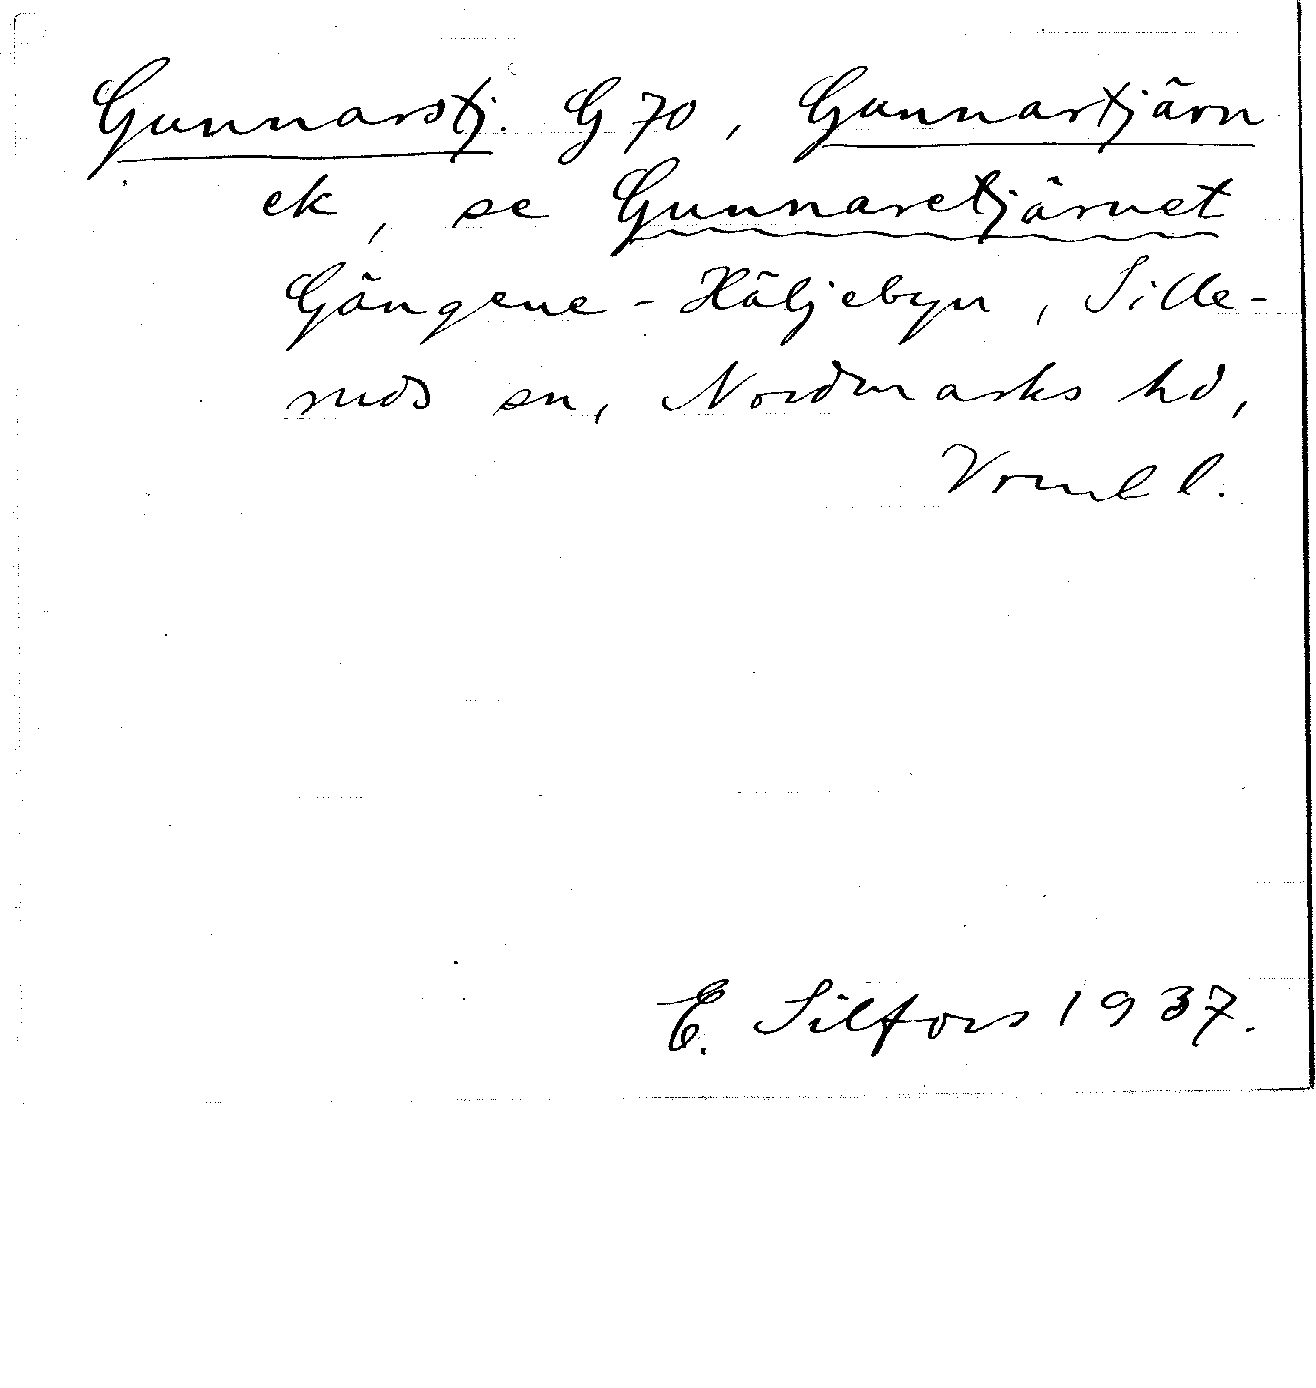 Gunnarstj. G 70, Gunnartjärn
ek, se Gunnaretjärnet
Gängene - Häljebyn, Sille-
ruds sn, Nordmarks hd,
Vrml l.
E. Silfors 1937.